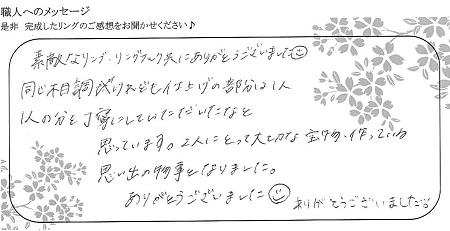 職人へのメッセージ
是非 完成したリングのご感想をお聞かせください♪
素敵なリング・リング 共にありがとうございました
同じ 仕上げの部分は1人
1人の分を丁寧にしていただいたなと
思っています。2人にとって大切な宝物、作っている
思い出の物事となりました。
ありがとうございました
ありがとうございました